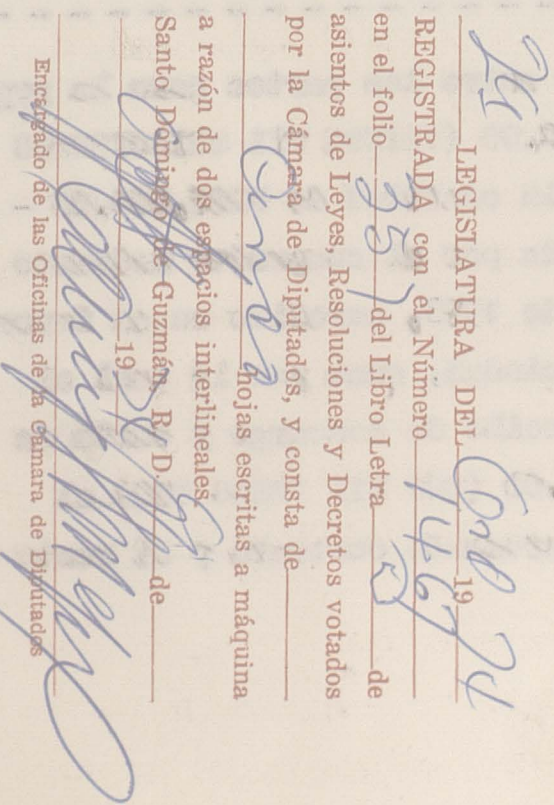 2ª LEGISLATURA DEL Ord 1974
REGISTRADA con el Número 1467
en el folio 357 del Libro Letra de
asientos de Leyes, Resoluciones y Decretos votados
por la Cámara de Diputados, y consta de
hojas escritas a máquina
a razón de dos espacios interlineales.
Santo Domingo de Guzmán, R. D. de
19
Encargado de las Oficinas de la Cámara de Diputados